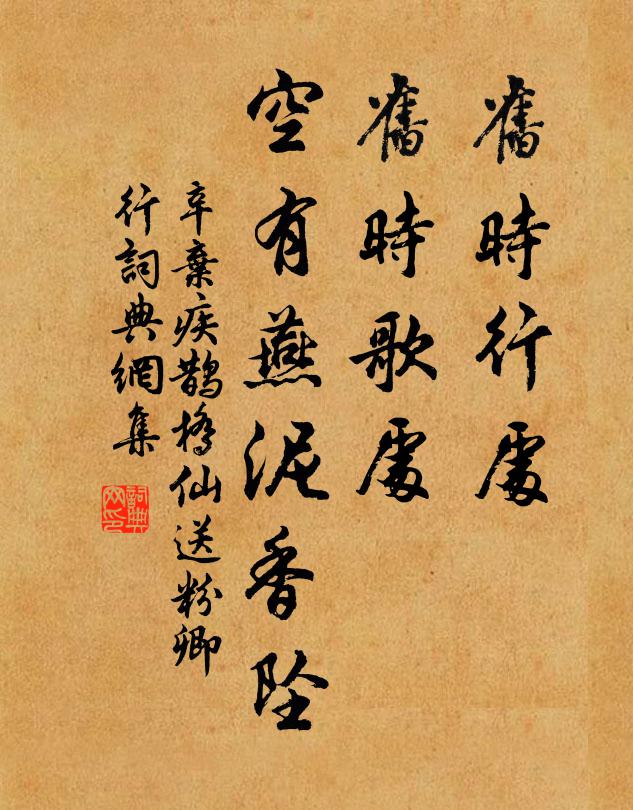 舊時行處
舊時歌處
空有燕泥香墜
辛棄疾鵲橋仙送粉卿
行詞典網集
詞典
网印